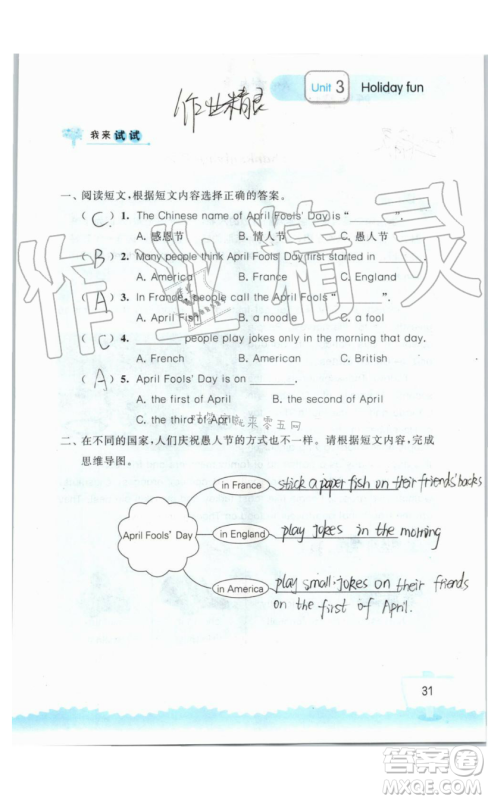 Unit 3 Holiday fun
作业精灵
我来试试
一、阅读短文，根据短文内容选择正确的答案。
( C ) 1. The Chinese name of April Fools' Day is "________".
A. 感恩节 B. 情人节 C. 愚人节
( B ) 2. Many people think April Fools' Day first started in ________.
A. America B. France C. England
( A ) 3. In France, people call the April Fools "________".
A. April Fish B. a noodle C. a fool
( C ) 4. ________ people play jokes only in the morning that day.
A. French B. American C. British
( A ) 5. April Fools' Day is on ________.
A. the first of April B. the second of April
C. the third of April
二、在不同的国家，人们庆祝愚人节的方式也不一样。请根据短文内容，完成
思维导图。
April Fools' Day
in France stick a paper fish on their friends' backs
in England play jokes in the morning
in America play small jokes on their friends
on the first of April.
31
作业精灵
答案圈